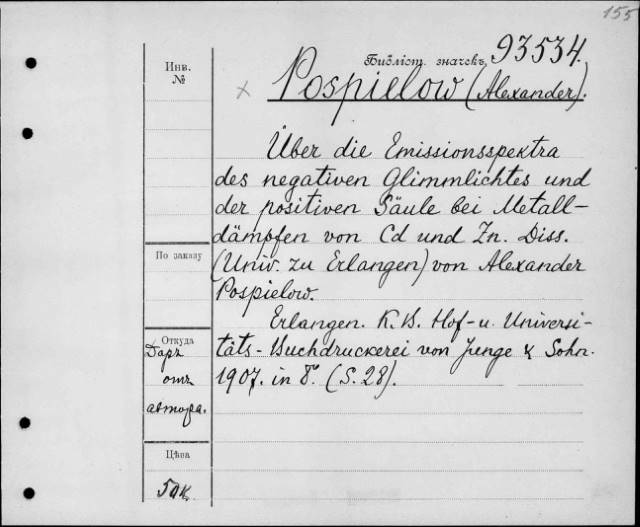 155
Инв.
№
Библіот. значекъ 93534.
× Pospielow (Alexander).
Über die Emissionsspektra
des negativen Glimmlichtes und
der positiven Säule bei Metall-
dämpfen von Cd und Zn. Diss.
(Univ. zu Erlangen) von Alexander
Pospielow.
Erlangen. K. B. Hof- u. Universi-
täts-Buchdruckerei von Junge & Sohn.
1907. in 8°. (S. 28).
По заказу
Откуда
Даръ
отъ
автора.
Цѣна
50 к.